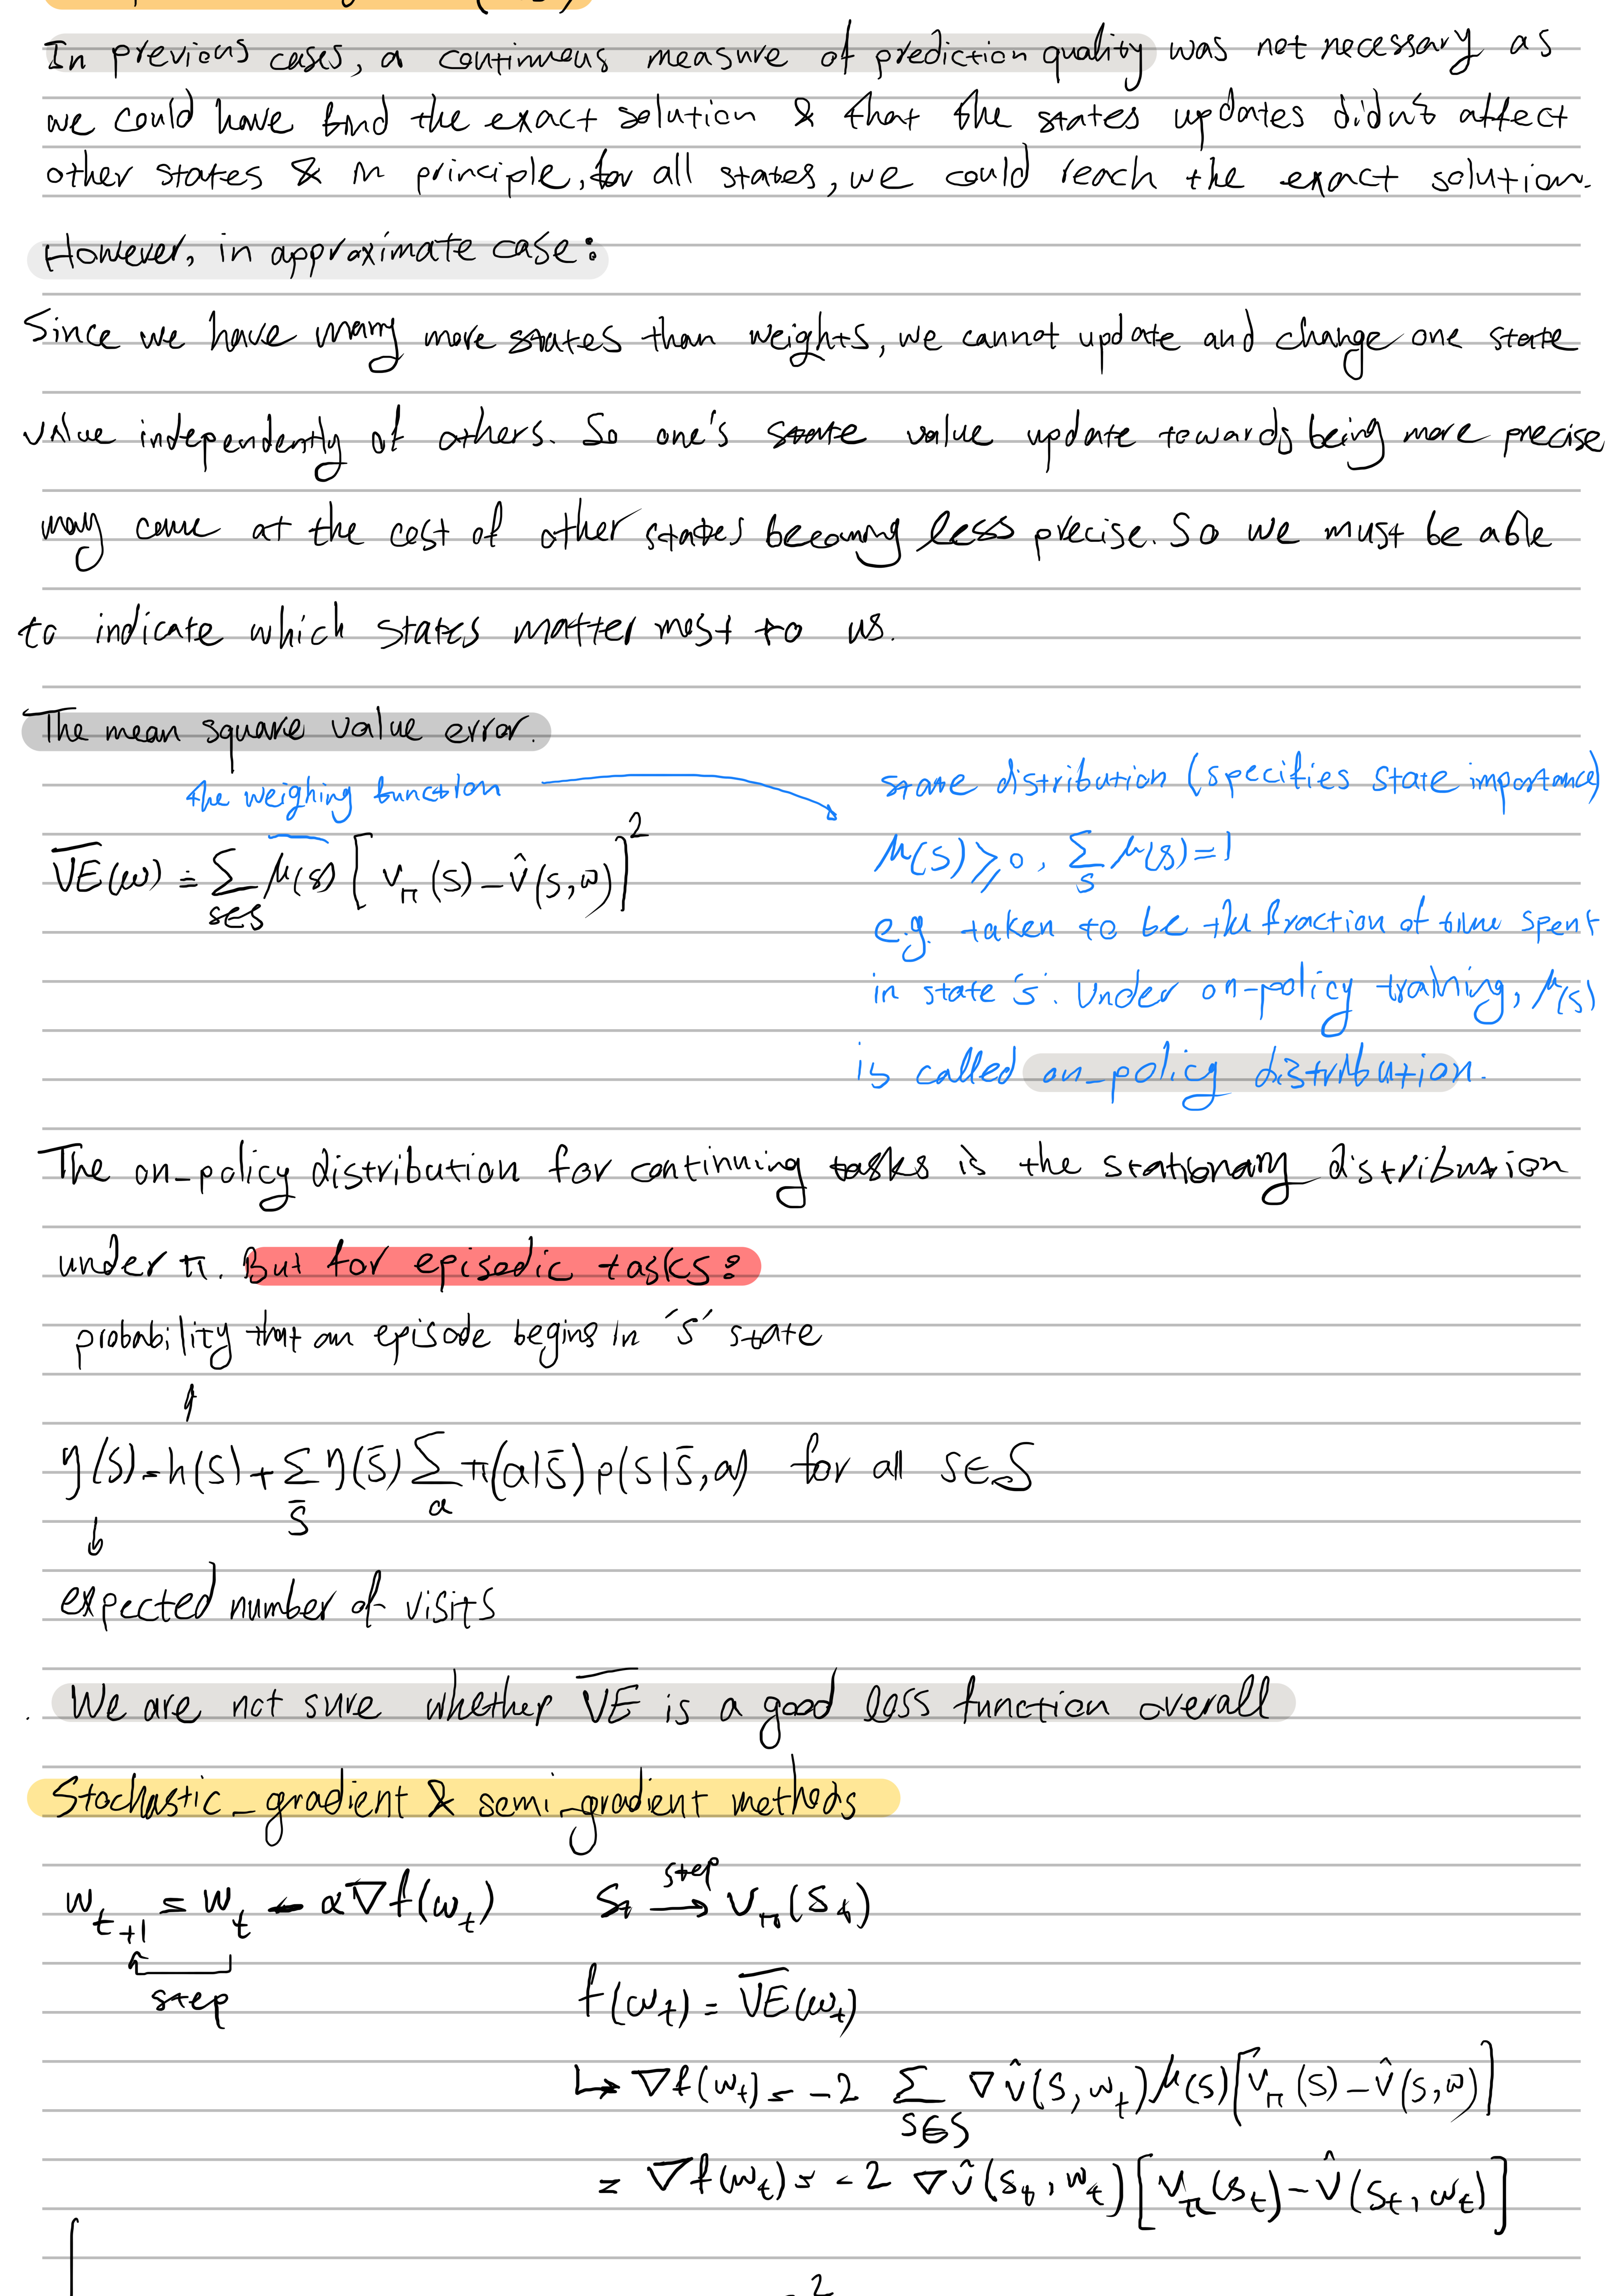 In previous cases, a continuous measure of prediction quality was not necessary as
we could have find the exact solution & that the states updates didn't affect
other states & in principle, for all states, we could reach the exact solution.
However, in approximate case:
Since we have many more states than weights, we cannot update and change one state
value independently of others. So one's state value update towards being more precise
may come at the cost of other states becoming less precise. So we must be able
to indicate which states matter most to us.
The mean square value error.
the weighing function
state distribution (specifies state importance)
μ(s) ⩾ 0, Σ_s μ(s) = 1
V̅E̅(w) ≐ Σ_{s∈S} μ(s) [v_π(s) - v̂(s,w)]²
e.g. taken to be the fraction of time spent
in state 's'. Under on-policy training, μ(s)
is called on-policy distribution.
The on-policy distribution for continuing tasks is the stationary distribution
under π. But for episodic tasks:
probability that an episode begins in 's' state
η(s) = h(s) + Σ_s̄ η(s̄) Σ_a π(a|s̄) p(s|s̄,a) for all s∈S
expected number of visits
We are not sure whether V̅E̅ is a good loss function overall
Stochastic-gradient & semi-gradient methods
w_{t+1} = w_t - α∇f(w_t)
step
S_t →step v_π(S_t)
f(w_t) = V̅E̅(w_t)
↳ ∇f(w_t) = -2 Σ_{s∈S} ∇v̂(s,w_t) μ(s) [v_π(s) - v̂(s,w)]
= ∇f(w_t) = -2 ∇v̂(s_t, w_t) [v_π(s_t) - v̂(s_t, w_t)]
2